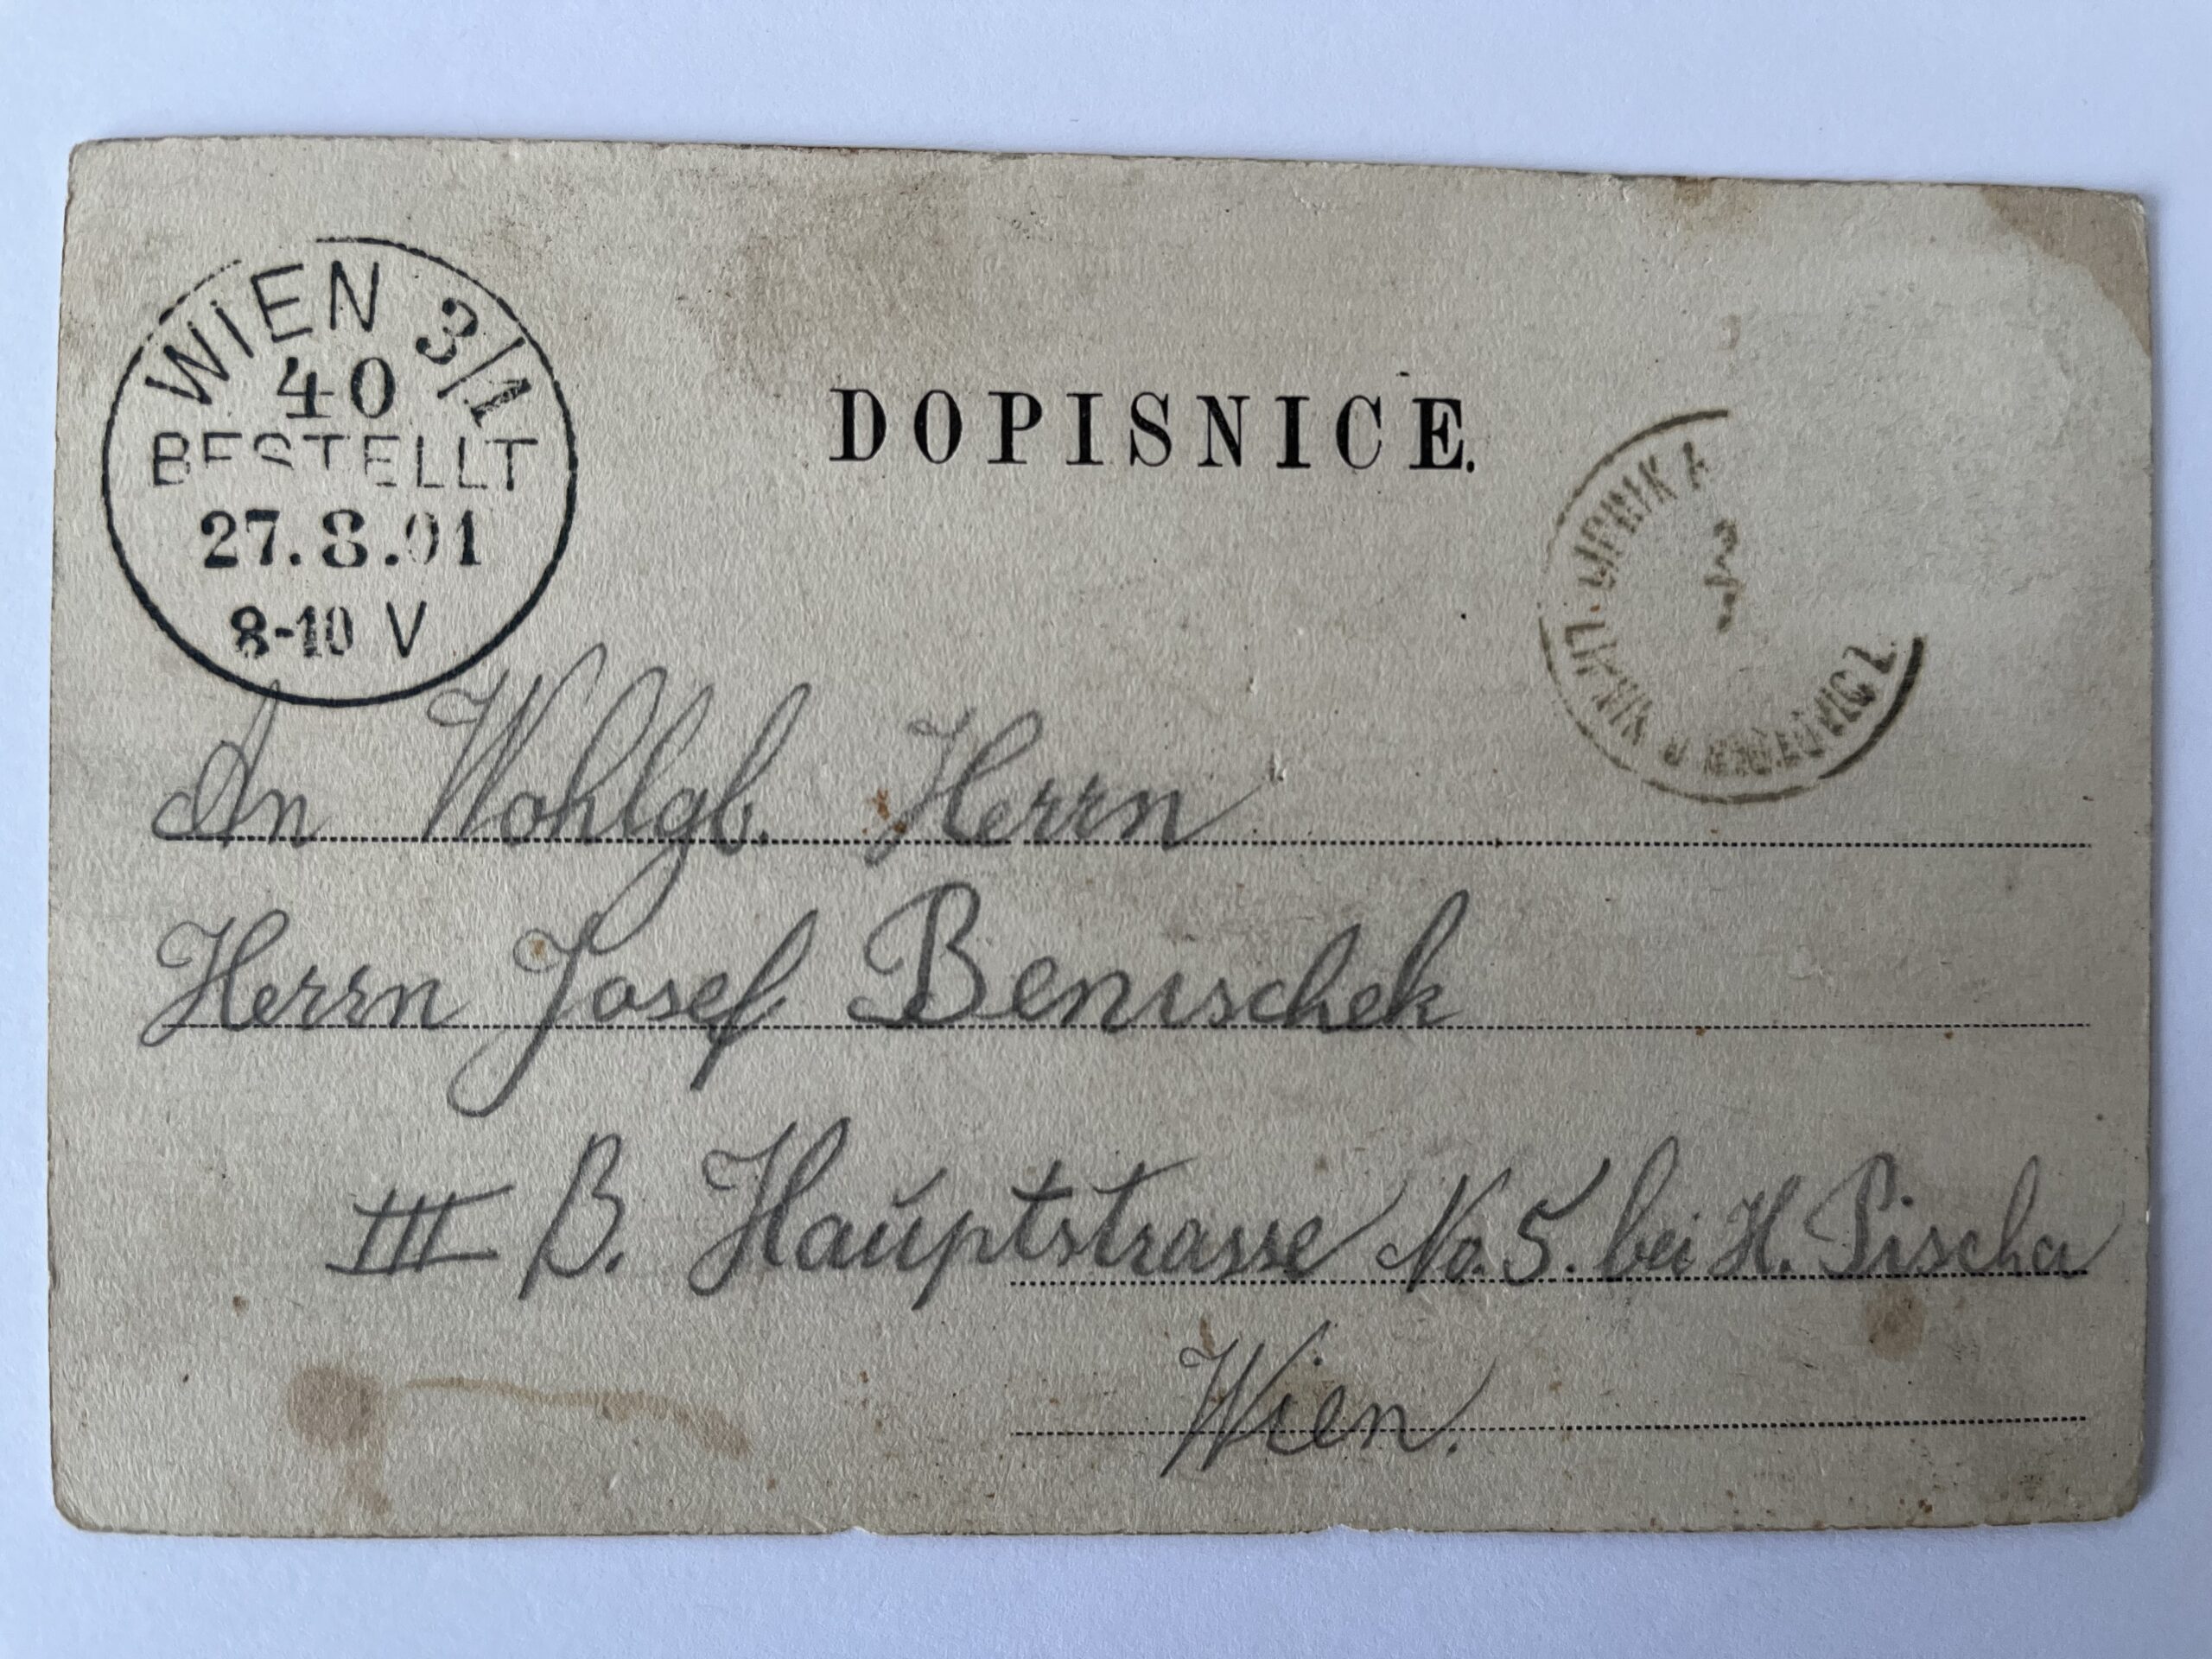 WIEN 3/1
40
BESTELLT
27.8.01
8-10 V
DOPISNICE.
An Wohlgb. Herrn
Herrn Josef Benischek
III B. Hauptstrasse No. 5. bei H. Pischa
Wien.